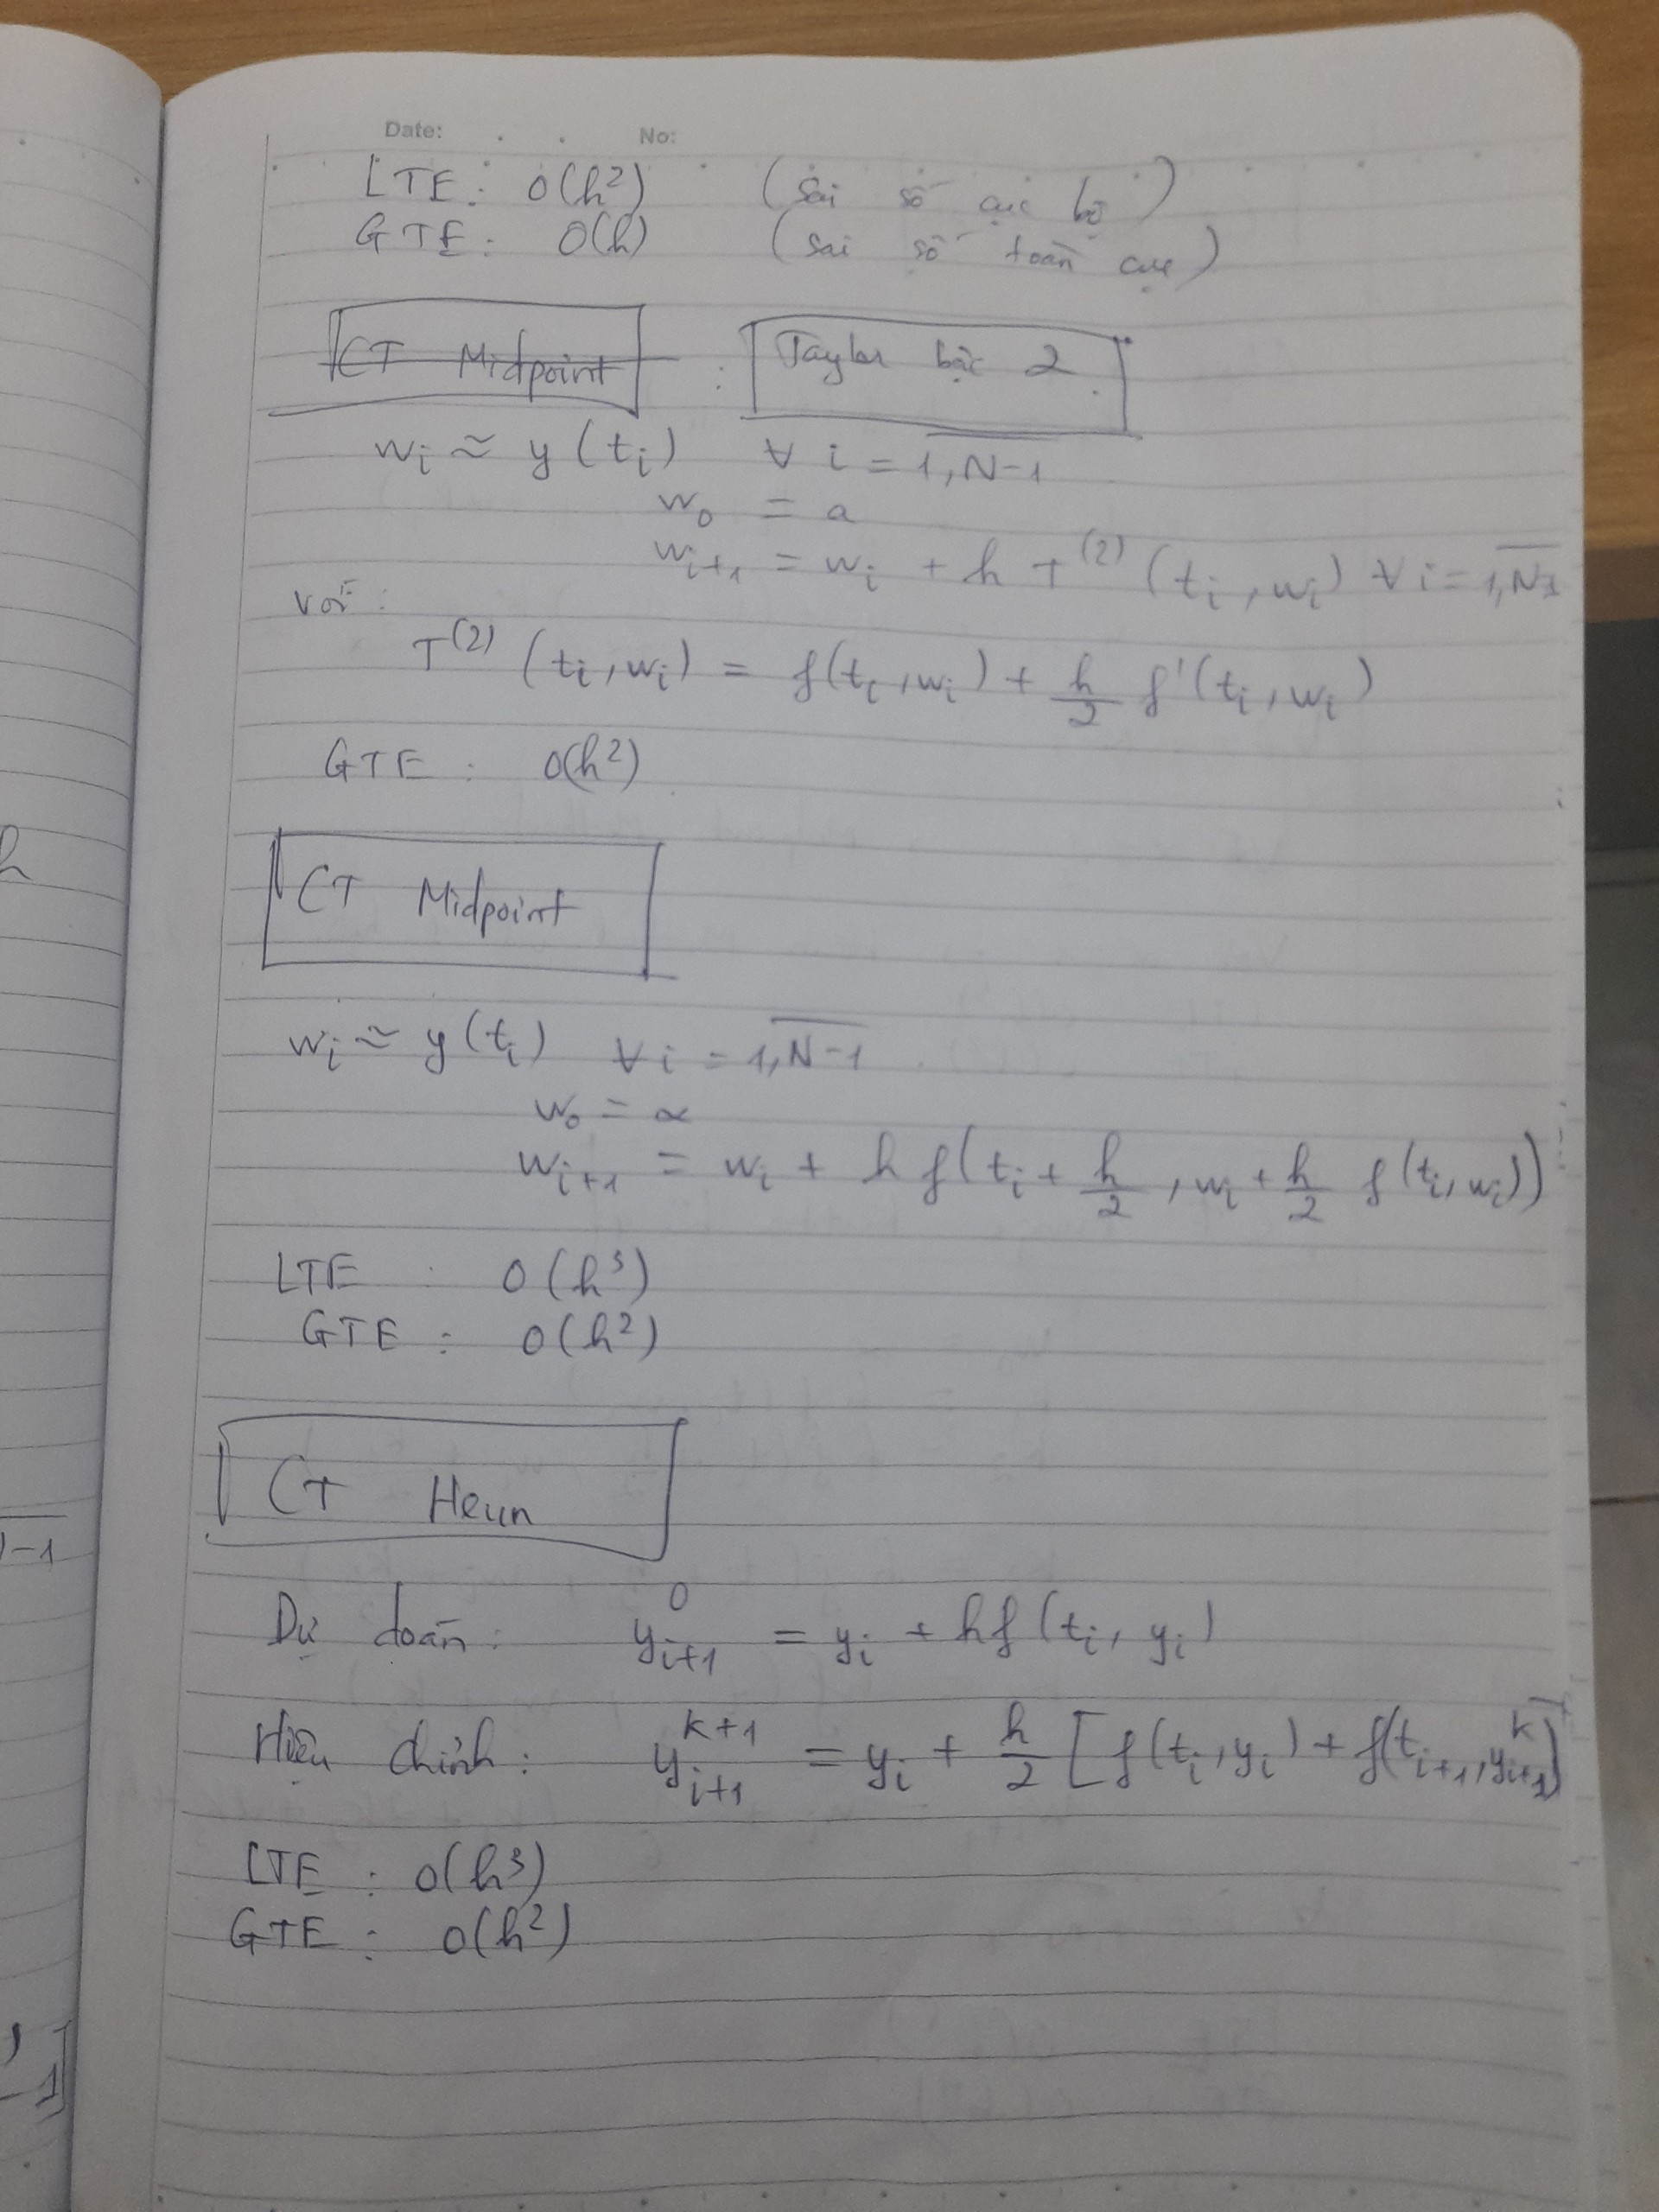 Date: No:
LTE: O(h²) (sai số cục bộ)
GTE: O(h) (sai số toàn cục)
CT Midpoint : Taylor bậc 2
wᵢ ≈ y(tᵢ) ∀ i = 1,N-1
w₀ = a
wᵢ₊₁ = wᵢ + h T⁽²⁾(tᵢ, wᵢ) ∀ i = 1,N-1
Với:
T⁽²⁾(tᵢ, wᵢ) = f(tᵢ, wᵢ) + h/2 f'(tᵢ, wᵢ)
GTE : O(h²)
CT Midpoint
wᵢ ≈ y(tᵢ) ∀ i = 1,N-1
w₀ = α
wᵢ₊₁ = wᵢ + h f(tᵢ + h/2, wᵢ + h/2 f(tᵢ, wᵢ))
LTE : O(h³)
GTE : O(h²)
CT Heun
Dự đoán: y⁰ᵢ₊₁ = yᵢ + hf(tᵢ, yᵢ)
Hiệu chỉnh: yᵏ⁺¹ᵢ₊₁ = yᵢ + h/2 [f(tᵢ, yᵢ) + f(tᵢ₊₁, yᵏᵢ₊₁)]
LTE : O(h³)
GTE : O(h²)